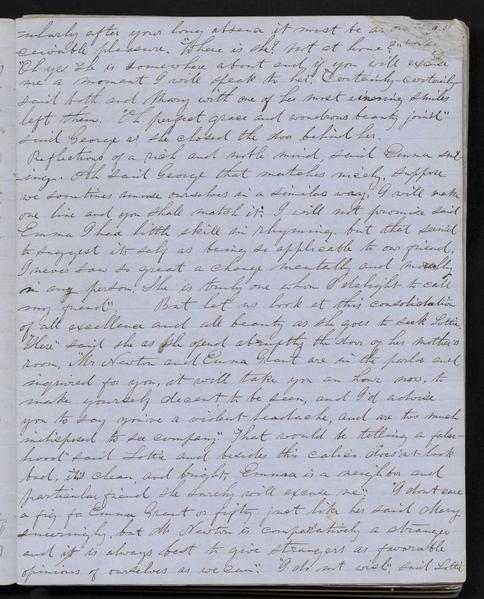 cularly after your long absence it must be an
ceivable pleasure. "Where is she? not at home?"
"Oh yes she is somewhere about and if you will excuse
me a moment I will speak to her." Certainly-certainly
said both and Mary with one of her most winning smiles
left them. "Of perfect grace and wondrous beauty joind"
said George as she closed the door behind her.
Reflections of a rich and noble mind, said Emma smi-
ling. Ah said George that matches nicely, suppose
we sometimes amuse ourselves in a similar way, I will make
one line and you shall match it. I will not promise said
Emma I had little skill in rhyming, but that seemd
to suggest its self as being so applicable to our friend.
I never saw so great a change mentally and morally
in any person. She is truly one whom I delight to call
my friend". But let us look at this consolidation
of all excellence and all beauty as she goes to seek Lottie.
"Here" said she as she opend abruptly the door of her mother's
room, "Mr Newton and Emma Grant are in the parlor and
inquired for you, it will take you an hour now, to
make yourself decent to be seen, and I'd advise
you to say you've a violent headache, and are too much
indisposed to see company." "That would be telling a false-
hood" said Lottie and besides this calico does'nt look
bad, it's clean, and bright. Emma is a neighbor and
particular friend she surely will excuse me." "I dont care
a fig for Emma Grant or fifty just like her said Mary
sneeringly, but Mr Newton is comparatively a stranger
and it is always best to give strangers as favorable
opinions of ourselves as we can". "I do not wish", said Lottie